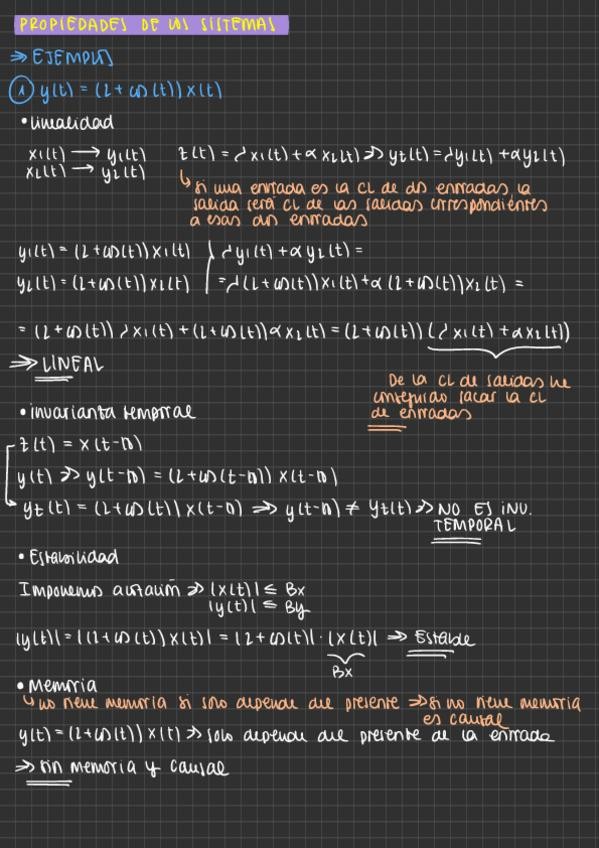 PROPIEDADES DE LOS SISTEMAS
⇒ EJEMPLOS
① y(t) = (2+cos(t)) x(t)
• linealidad
x1(t) → y1(t) z(t) = λx1(t) + αx2(t) ⇒ yz(t) = λy1(t) + αy2(t)
x2(t) → y2(t)
↳ si una entrada es la CL de dos entradas, la
salida será CL de las salidas correspondientes
a esas dos entradas
y1(t) = (2+cos(t)) x1(t) λy1(t) + αy2(t) =
y2(t) = (2+cos(t)) x2(t) = λ(2+cos(t)) x1(t) + α(2+cos(t)) x2(t) =
= (2+cos(t)) λx1(t) + (2+cos(t)) αx2(t) = (2+cos(t)) (λx1(t) + αx2(t))
⇒ LINEAL
De la CL de salidas he
conseguido sacar la CL
de entradas
• invarianza temporal
z(t) = x(t-to)
y(t) ⇒ y(t-to) = (2+cos(t-to)) x(t-to)
yz(t) = (2+cos(t)) x(t-to) ⇒ y(t-to) ≠ yz(t) ⇒ NO ES INV.
TEMPORAL
• Estabilidad
Imponemos acotación ⇒ |x(t)| ≤ Bx
|y(t)| ≤ By
|y(t)| = |(2+cos(t)) x(t)| = |2+cos(t)| · |x(t)| ⇒ Estable
Bx
• Memoria
↳ no tiene memoria si solo depende del presente ⇒ si no tiene memoria
es causal
y(t) = (2+cos(t)) x(t) ⇒ solo depende del presente de la entrada
⇒ sin memoria y causal